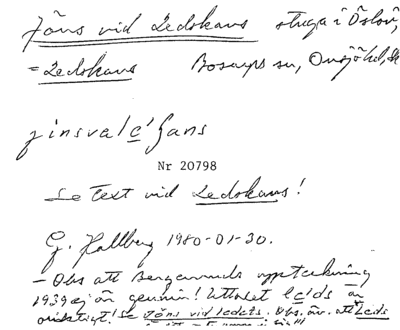 Jöns vid Ledskans stuga i Öslöv,
= Ledskans Bosarps sn, Onsjö hd, Sk
jinsvalc'hans
Nr 20798
Se text vid Ledskans!
G. Hallberg 1980-01-30.
– Obs att Bergenmds uppteckning
1939 ej är genuin! Uttalet lc'ds är
oriktigt! Se Jöns vid ledets. Obs. äv. att Leds